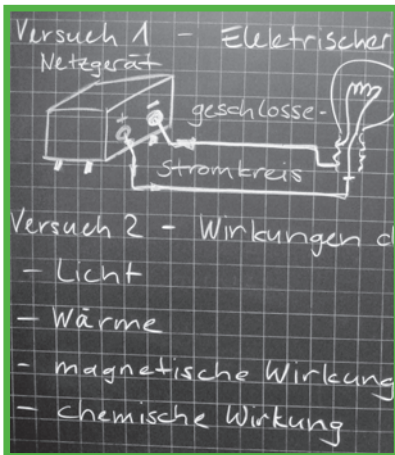 Versuch 1 - Elektrischer
Netzgerät
+ -
geschlosse-
Stromkreis
Versuch 2 - Wirkungen d
- Licht
- Wärme
- magnetische Wirkung
- chemische Wirkung